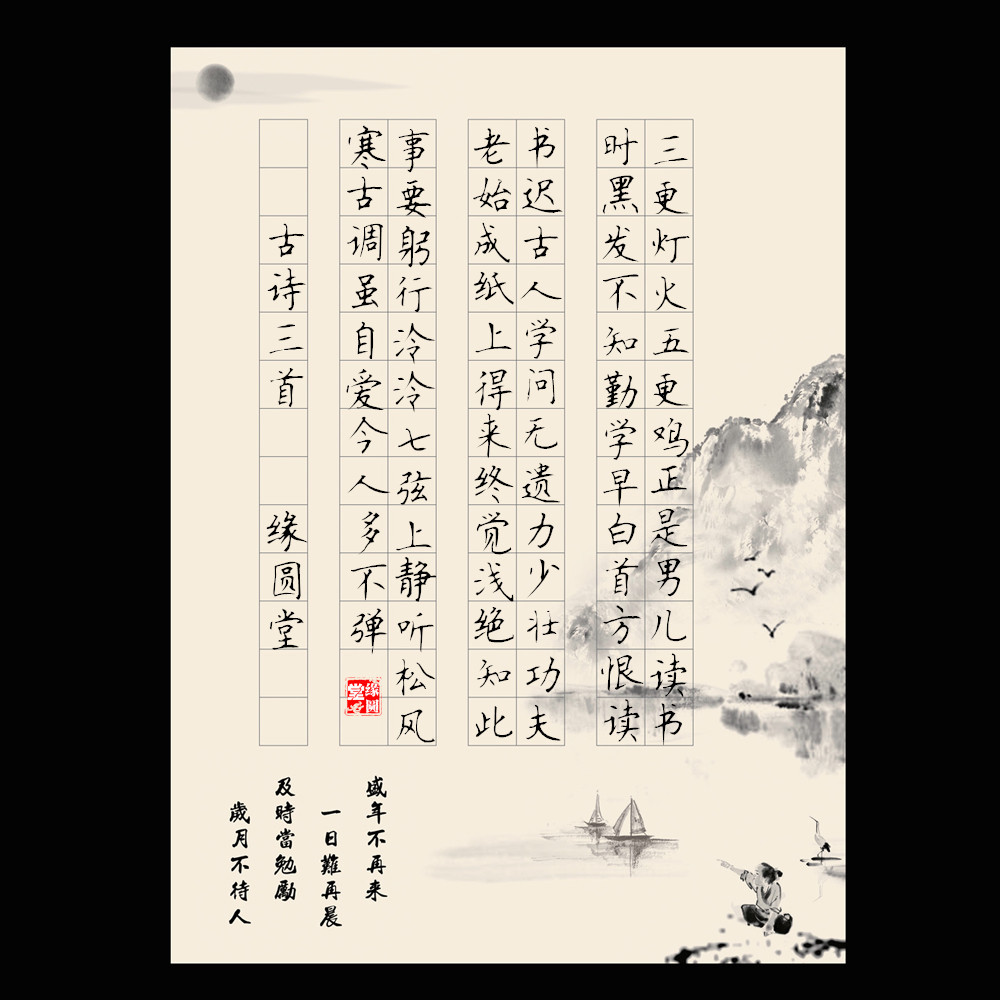 三更灯火五更鸡正是男儿读书
时黑发不知勤学早白首方恨读
书迟古人学问无遗力少壮功夫
老始成纸上得来终觉浅绝知此
事要躬行泠泠七弦上静听松风
寒古调虽自爱今人多不弹
古诗三首 缘圆堂
缘圆堂
盛年不再来
一日難再晨
及時當勉勵
歲月不待人